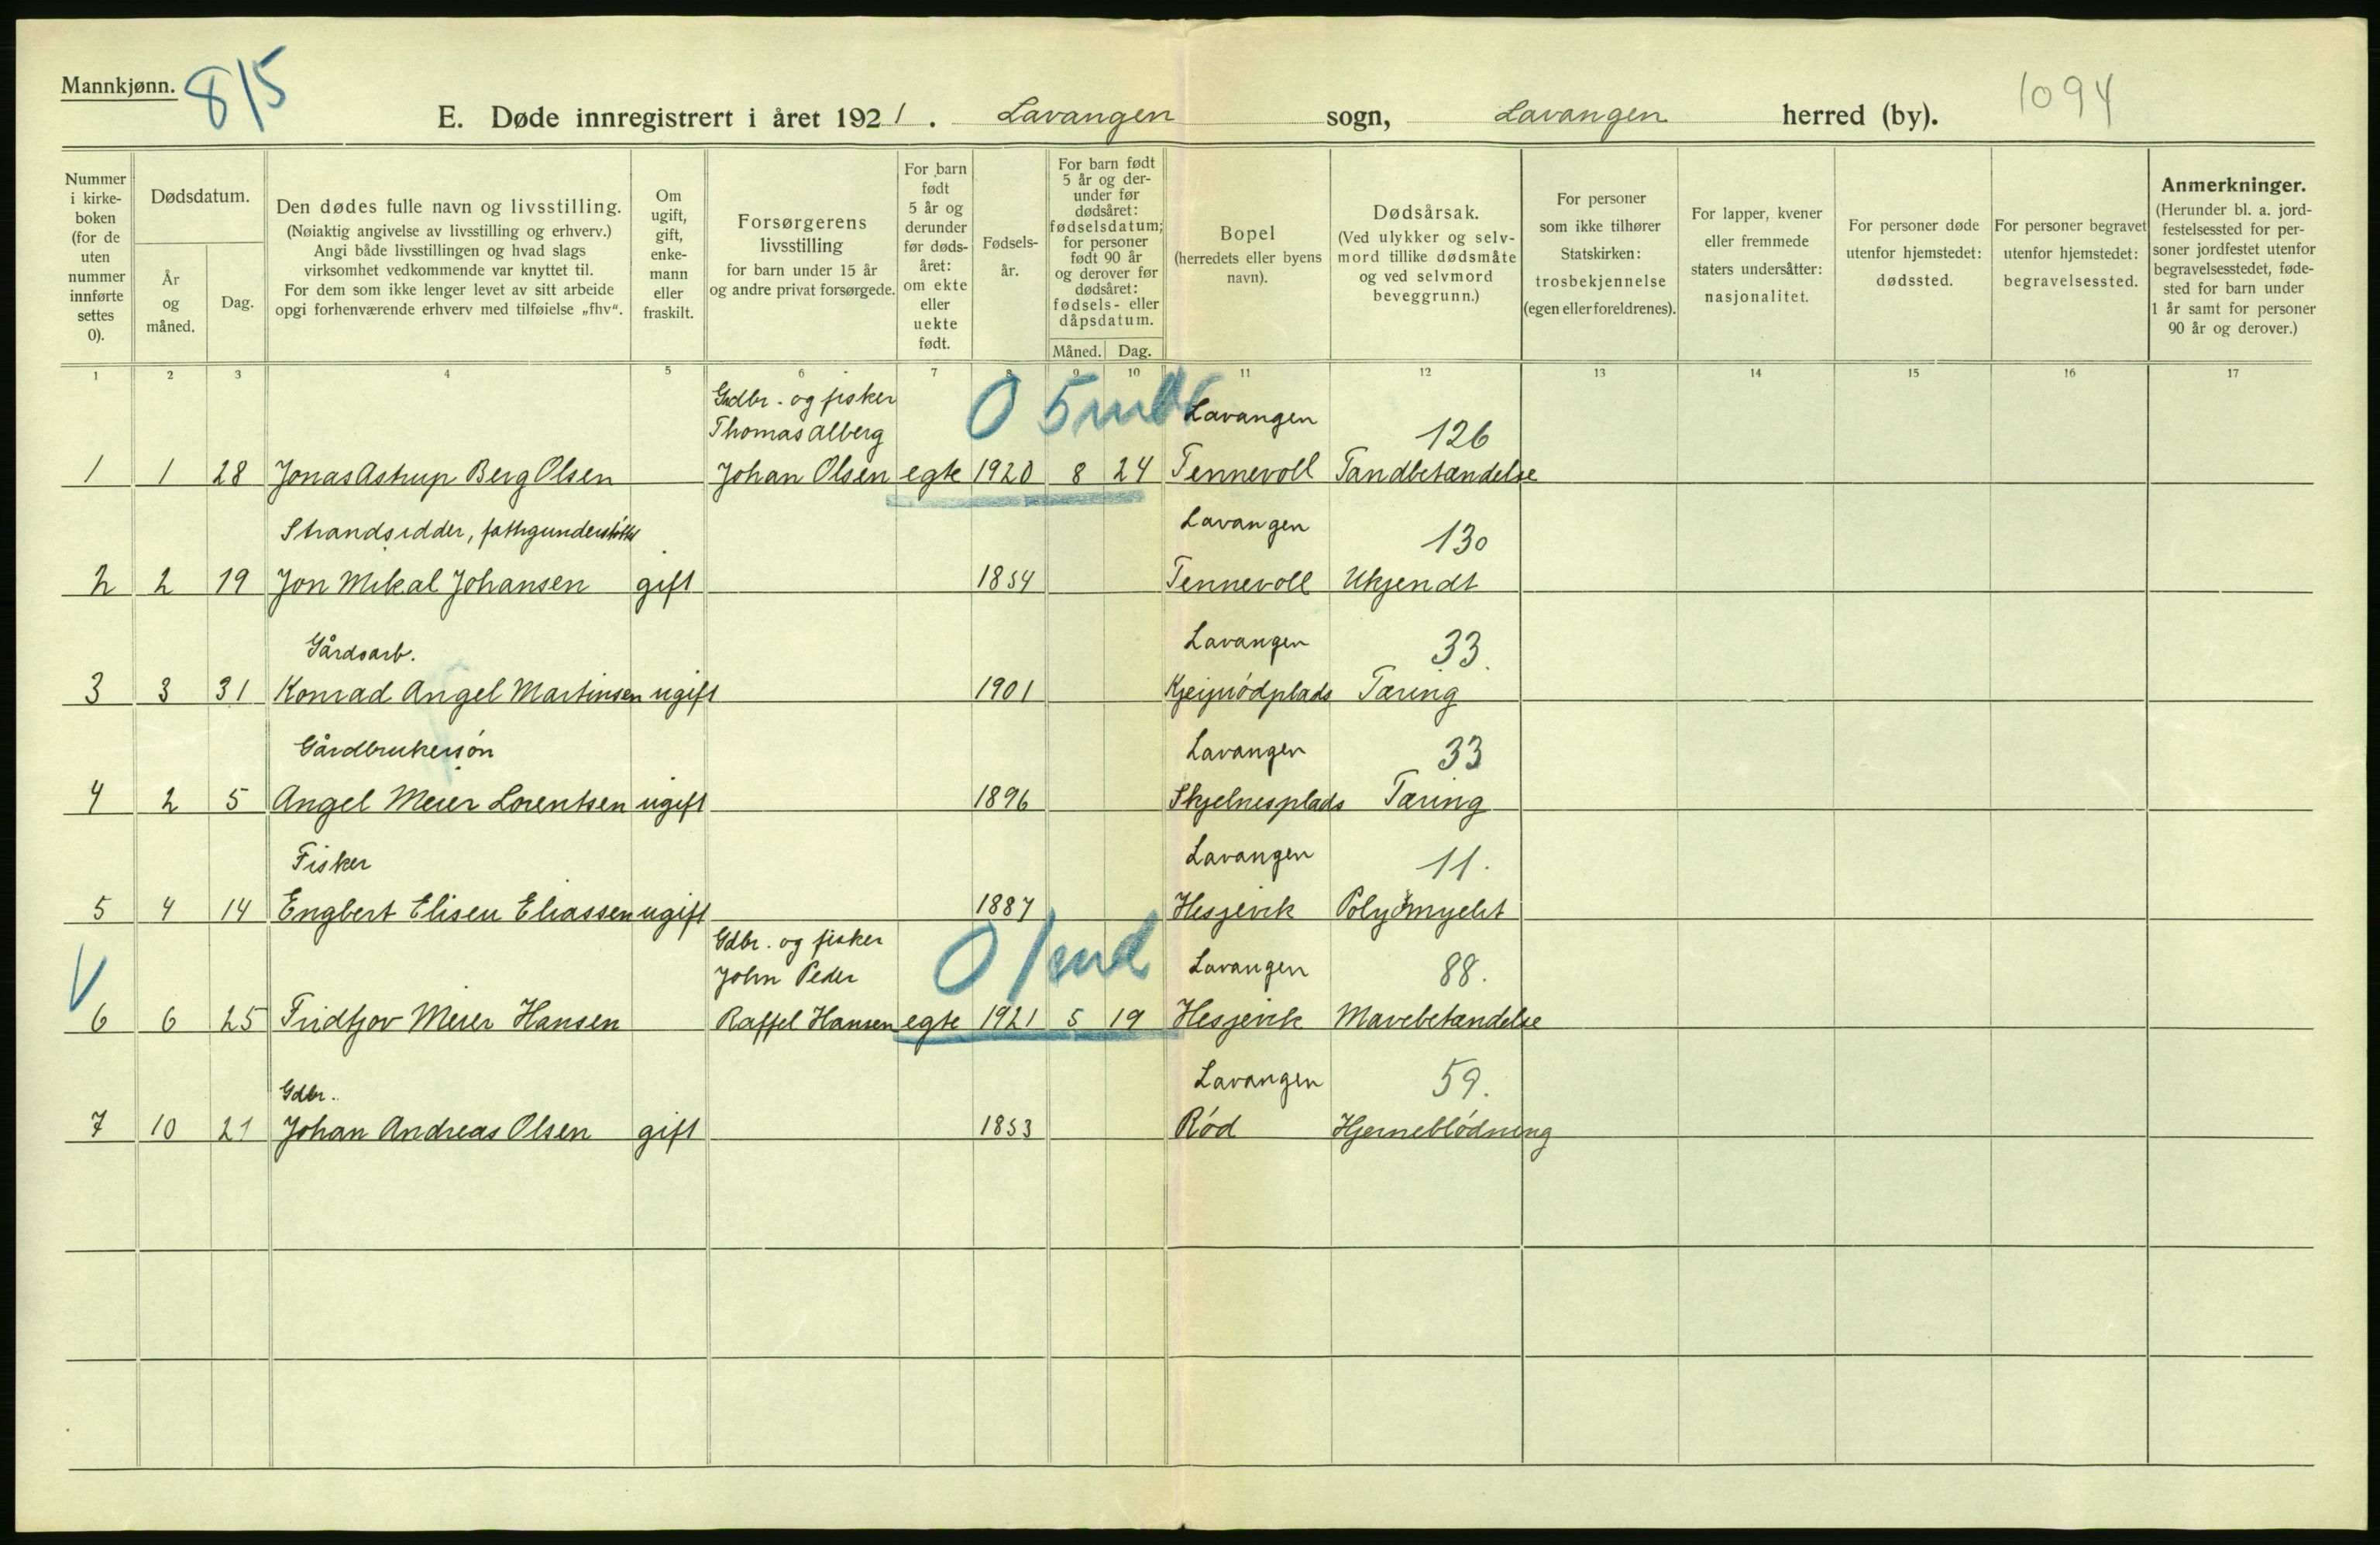 Mannkjønn.
815
E. Døde innregistrert i året 1921. Lavangen sogn, Lavangen herred (by).
1094
Nummer i kirke-boken (for de uten nummer innførte settes 0).
Dødsdatum.
År og måned.
Dag.
Den dødes fulle navn og livsstilling.
(Nøiaktig angivelse av livsstilling og erhverv.)
Angi både livsstillingen og hvad slags
virksomhet vedkommende var knyttet til.
For dem som ikke lenger levet av sitt arbeide
opgi forhenværende erhverv med tilføielse „fhv“.
Om ugift, gift, enke-mann eller fraskilt.
Forsørgerens livsstilling
for barn under 15 år
og andre privat forsørgede.
For barn født 5 år og derunder før døds-året: om ekte eller uekte født.
Fødsels-år.
For barn født 5 år og der-under før dødsåret: fødselsdatum; for personer født 90 år og derover før dødsåret: fødsels- eller dåpsdatum.
Måned. Dag.
Bopel
(herredets eller byens navn).
Dødsårsak.
(Ved ulykker og selv-mord tillike dødsmåte og ved selvmord beveggrunn.)
For personer som ikke tilhører Statskirken: trosbekjennelse (egen eller foreldrenes).
For lapper, kvener eller fremmede staters undersåtter: nasjonalitet.
For personer døde utenfor hjemstedet: dødssted.
For personer begravet utenfor hjemstedet: begravelsessted.
Anmerkninger.
(Herunder bl. a. jord-festelsessted for per-soner jordfestet utenfor begravelsesstedet, føde-sted for barn under 1 år samt for personer 90 år og derover.)
1 2 3 4 5 6 7 8 9 10 11 12 13 14 15 16 17
Gdbr. og fisker 0 5 mdr Lavangen
Thomas Alberg 126
1 1 28 Jonas Astrup Berg Olsen Johan Olsen egte 1920 8 24 Tennevoll Tandbetændelse
Strandsidder, fattigunderstøttet Lavangen 130
2 2 19 Jon Mikal Johansen gift 1854 Tennevoll Ukjendt
Gårdsarb. Lavangen 33.
3 3 31 Konrad Angel Martinsen ugift 1901 Tæring
Gårdbrukersøn Lavangen 33
4 2 5 Angel Meier Lorentsen ugift 1896 Skjelnesplads Tæring
Fisker Lavangen 11.
5 4 14 Engbert Eliseu Eliassen ugift 1887 Hesjevik
Gdbr. og fisker 0 1 md Lavangen
V John Peder 88.
6 6 25 Fridtjov Meier Hansen Raffel Hansen egte 1921 5 19 Hesjevik Mavebetændelse
Gdbr. Lavangen 59.
7 10 21 Johan Andreas Olsen gift 1853 Rød Hjerneblødning